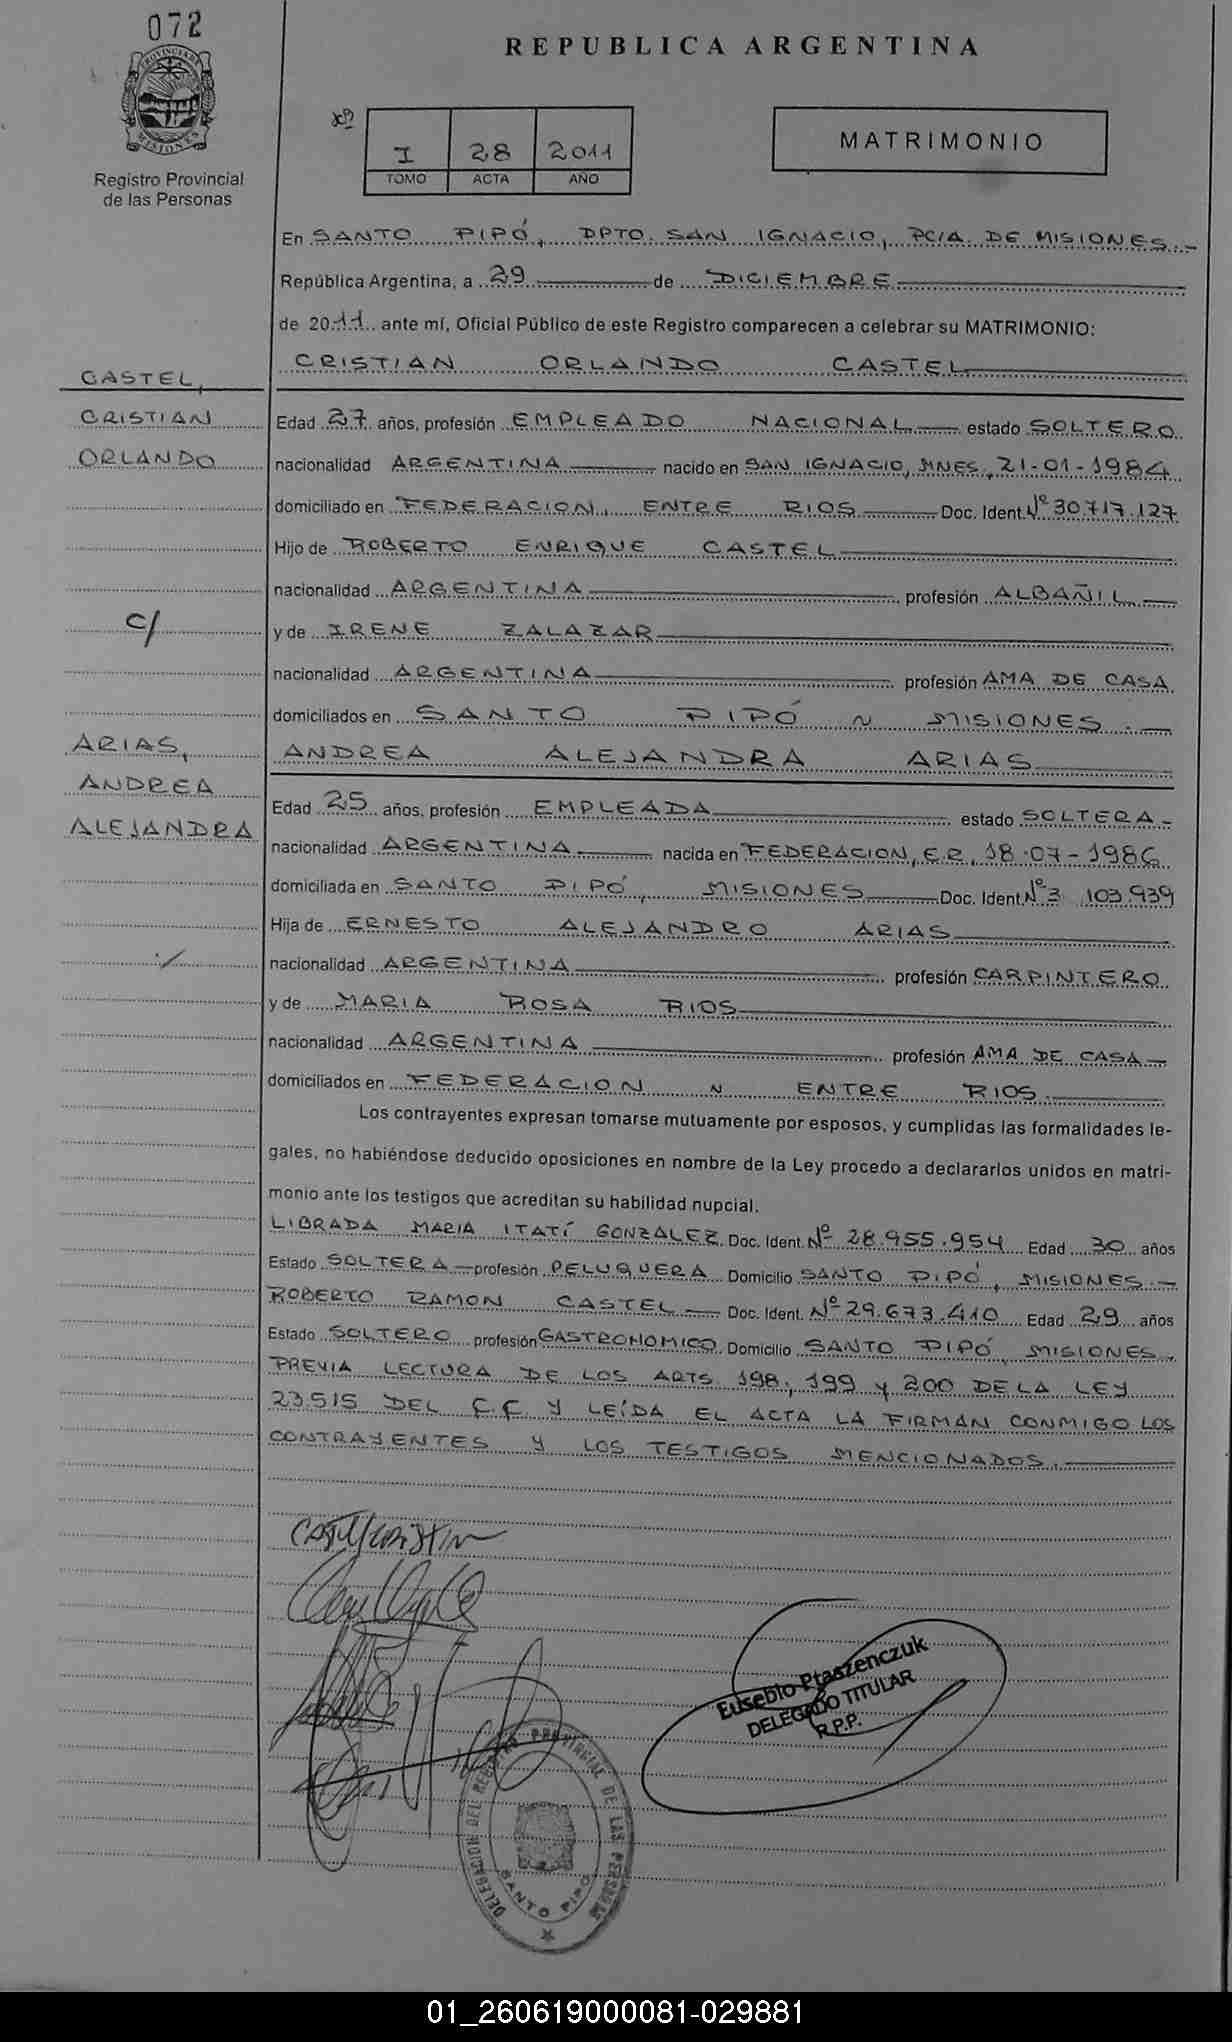 072
PROVINCIA DE
MISIONES
Registro Provincial
de las Personas
REPUBLICA ARGENTINA
Nº
I 28 2011
TOMO ACTA AÑO
MATRIMONIO
En SANTO PIPÓ, DPTO. SAN IGNACIO, PCIA. DE MISIONES.-
República Argentina, a 29 de DICIEMBRE
de 2011 ante mí, Oficial Público de este Registro comparecen a celebrar su MATRIMONIO:
CRISTIAN ORLANDO CASTEL
CASTEL,
CRISTIAN
ORLANDO
C/
ARIAS,
ANDREA
ALEJANDRA
Edad 27 años, profesión EMPLEADO NACIONAL estado SOLTERO
nacionalidad ARGENTINA nacido en SAN IGNACIO, MNES, 21-01-1984
domiciliado en FEDERACION, ENTRE RIOS Doc. Ident. Nº 30.717.127
Hijo de ROBERTO ENRIQUE CASTEL
nacionalidad ARGENTINA profesión ALBAÑIL
y de IRENE ZALAZAR
nacionalidad ARGENTINA profesión AMA DE CASA
domiciliados en SANTO PIPÓ ~ MISIONES.
ANDREA ALEJANDRA ARIAS
Edad 25 años, profesión EMPLEADA estado SOLTERA-
nacionalidad ARGENTINA nacida en FEDERACION, E.R, 18-07-1986
domiciliada en SANTO PIPÓ, MISIONES Doc. Ident. Nº 3 103.939
Hija de ERNESTO ALEJANDRO ARIAS
nacionalidad ARGENTINA profesión CARPINTERO
y de MARIA ROSA RIOS
nacionalidad ARGENTINA profesión AMA DE CASA
domiciliados en FEDERACION ~ ENTRE RIOS.
Los contrayentes expresan tomarse mutuamente por esposos, y cumplidas las formalidades le-
gales, no habiéndose deducido oposiciones en nombre de la Ley procedo a declararlos unidos en matri-
monio ante los testigos que acreditan su habilidad nupcial.
LIBRADA MARIA ITATÍ GONZALEZ Doc. Ident. Nº 28.955.954 Edad 30 años
Estado SOLTERA profesión PELUQUERA Domicilio SANTO PIPÓ, MISIONES.-
ROBERTO RAMON CASTEL Doc. Ident. Nº 29.673.410 Edad 29 años
Estado SOLTERO profesión GASTRONOMICO Domicilio SANTO PIPÓ, MISIONES.
PREVIA LECTURA DE LOS ARTS. 198, 199 y 200 DE LA LEY
23.515 DEL C.C Y LEÍDA EL ACTA LA FIRMAN CONMIGO LOS
CONTRAYENTES Y LOS TESTIGOS MENCIONADOS.
Eusebio Ptaszenczuk
DELEGADO TITULAR
R.P.P.
DELEGACION DEL REGISTRO PROVINCIAL DE LAS PERSONAS
SANTO PIPO
01_260619000081-029881